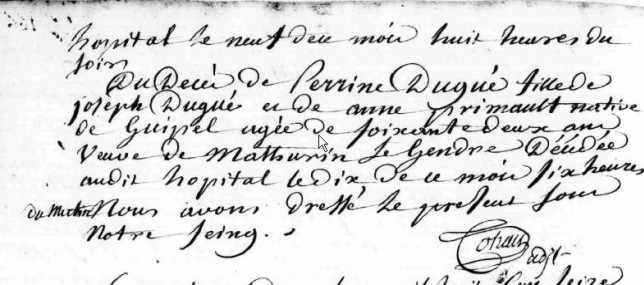 hopital le neuf dece mois huit heures du
soir
Du Decés de Perrine Dugué fille de
joseph Dugué et de anne primault native
de Guipel agée de soixante deux ans
Veuve de Mathurin Le Gendre Décédée
audit hopital le dix de ce mois six heures
du Matin Nous avons dressé le present sous
Notre seing.
adjt